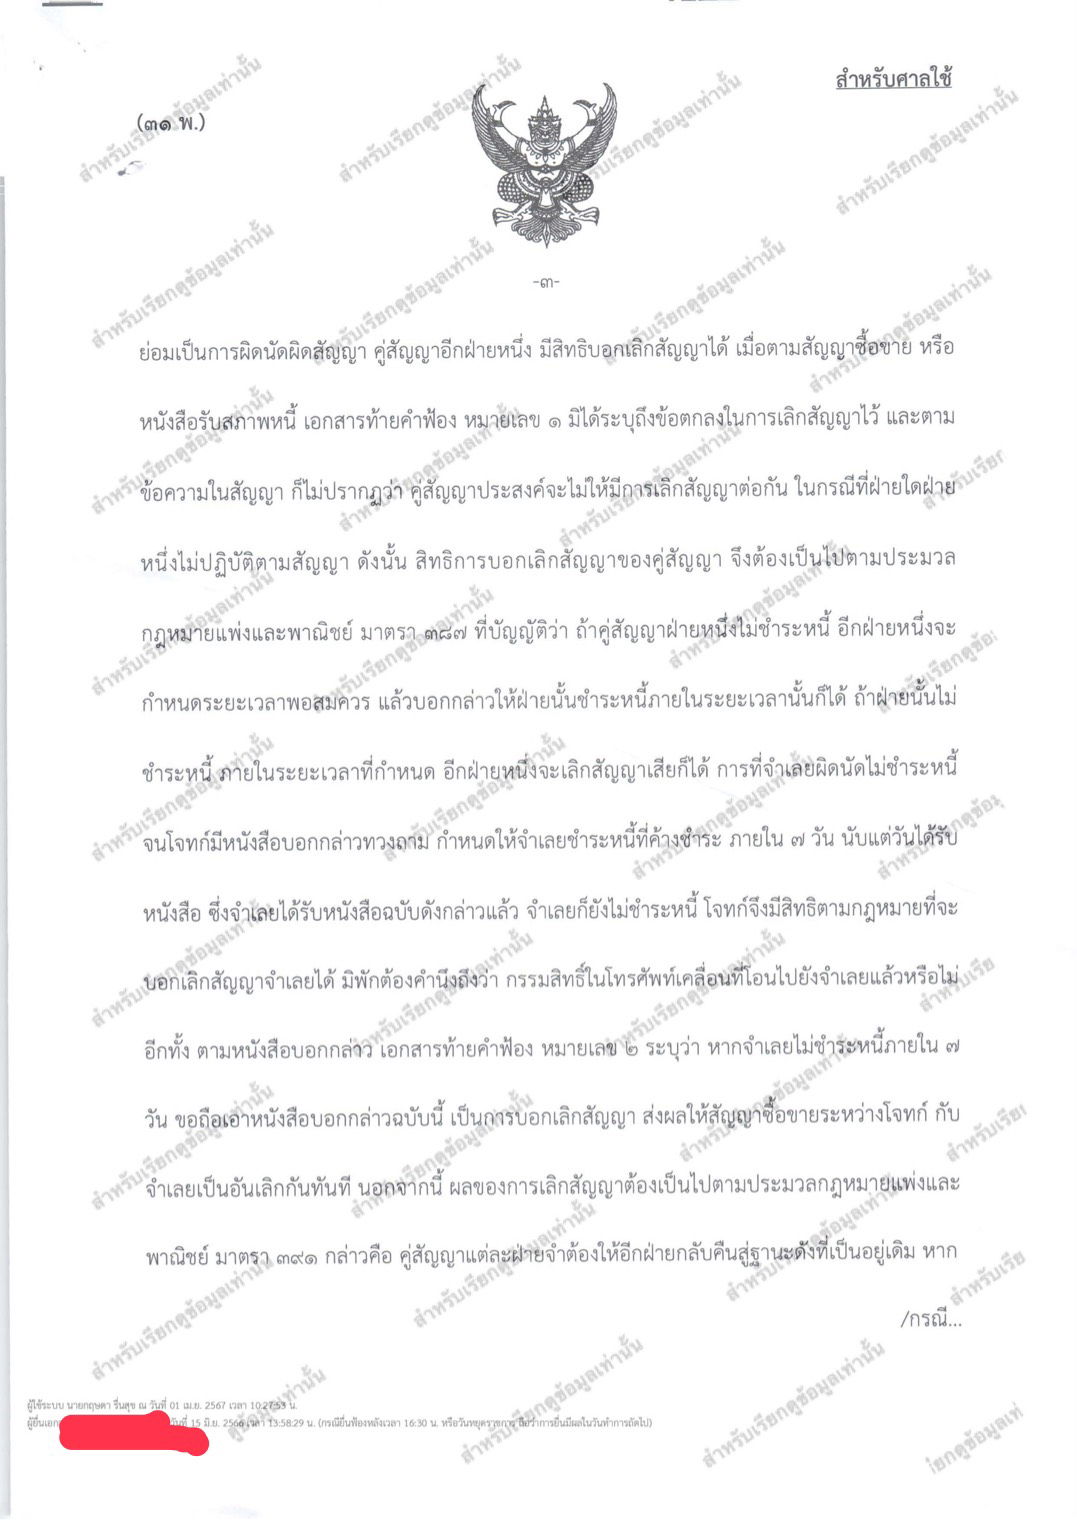 สำหรับศาลใช้
(๓๑ พ.)
-๓-
ย่อมเป็นการผิดนัดผิดสัญญา คู่สัญญาอีกฝ่ายหนึ่ง มีสิทธิบอกเลิกสัญญาได้ เมื่อตามสัญญาซื้อขาย หรือ
หนังสือรับสภาพหนี้ เอกสารท้ายคำฟ้อง หมายเลข ๑ มิได้ระบุถึงข้อตกลงในการเลิกสัญญาไว้ และตาม
ข้อความในสัญญา ก็ไม่ปรากฏว่า คู่สัญญาประสงค์จะไม่ให้มีการเลิกสัญญาต่อกัน ในกรณีที่ฝ่ายใดฝ่าย
หนึ่งไม่ปฏิบัติตามสัญญา ดังนั้น สิทธิการบอกเลิกสัญญาของคู่สัญญา จึงต้องเป็นไปตามประมวล
กฎหมายแพ่งและพาณิชย์ มาตรา ๓๘๗ ที่บัญญัติว่า ถ้าคู่สัญญาฝ่ายหนึ่งไม่ชำระหนี้ อีกฝ่ายหนึ่งจะ
กำหนดระยะเวลาพอสมควร แล้วบอกกล่าวให้ฝ่ายนั้นชำระหนี้ภายในระยะเวลานั้นก็ได้ ถ้าฝ่ายนั้นไม่
ชำระหนี้ ภายในระยะเวลาที่กำหนด อีกฝ่ายหนึ่งจะเลิกสัญญาเสียก็ได้ การที่จำเลยผิดนัดไม่ชำระหนี้
จนโจทก์มีหนังสือบอกกล่าวทวงถาม กำหนดให้จำเลยชำระหนี้ที่ค้างชำระ ภายใน ๗ วัน นับแต่วันได้รับ
หนังสือ ซึ่งจำเลยได้รับหนังสือฉบับดังกล่าวแล้ว จำเลยก็ยังไม่ชำระหนี้ โจทก์จึงมีสิทธิตามกฎหมายที่จะ
บอกเลิกสัญญาจำเลยได้ มิพักต้องคำนึงถึงว่า กรรมสิทธิ์ในโทรศัพท์เคลื่อนที่โอนไปยังจำเลยแล้วหรือไม่
อีกทั้ง ตามหนังสือบอกกล่าว เอกสารท้ายคำฟ้อง หมายเลข ๒ ระบุว่า หากจำเลยไม่ชำระหนี้ภายใน ๗
วัน ขอถือเอาหนังสือบอกกล่าวฉบับนี้ เป็นการบอกเลิกสัญญา ส่งผลให้สัญญาซื้อขายระหว่างโจทก์ กับ
จำเลยเป็นอันเลิกกันทันที นอกจากนี้ ผลของการเลิกสัญญาต้องเป็นไปตามประมวลกฎหมายแพ่งและ
พาณิชย์ มาตรา ๓๙๑ กล่าวคือ คู่สัญญาแต่ละฝ่ายจำต้องให้อีกฝ่ายกลับคืนสู่ฐานะดังที่เป็นอยู่เดิม หาก
/กรณี...
ผู้ใช้ระบบ นายกฤษดา รื่นสุข ณ วันที่ 01 เม.ย. 2567 เวลา 10:27:53 น.
ผู้ยื่นเอก วันที่ 15 มิ.ย. 2566 เวลา 13:58:29 น. (กรณียื่นฟ้องหลังเวลา 16:30 น. หรือวันหยุดราชการ ถือว่าการยื่นมีผลในวันทำการถัดไป)
สำหรับเรียกดูข้อมูลเท่านั้น